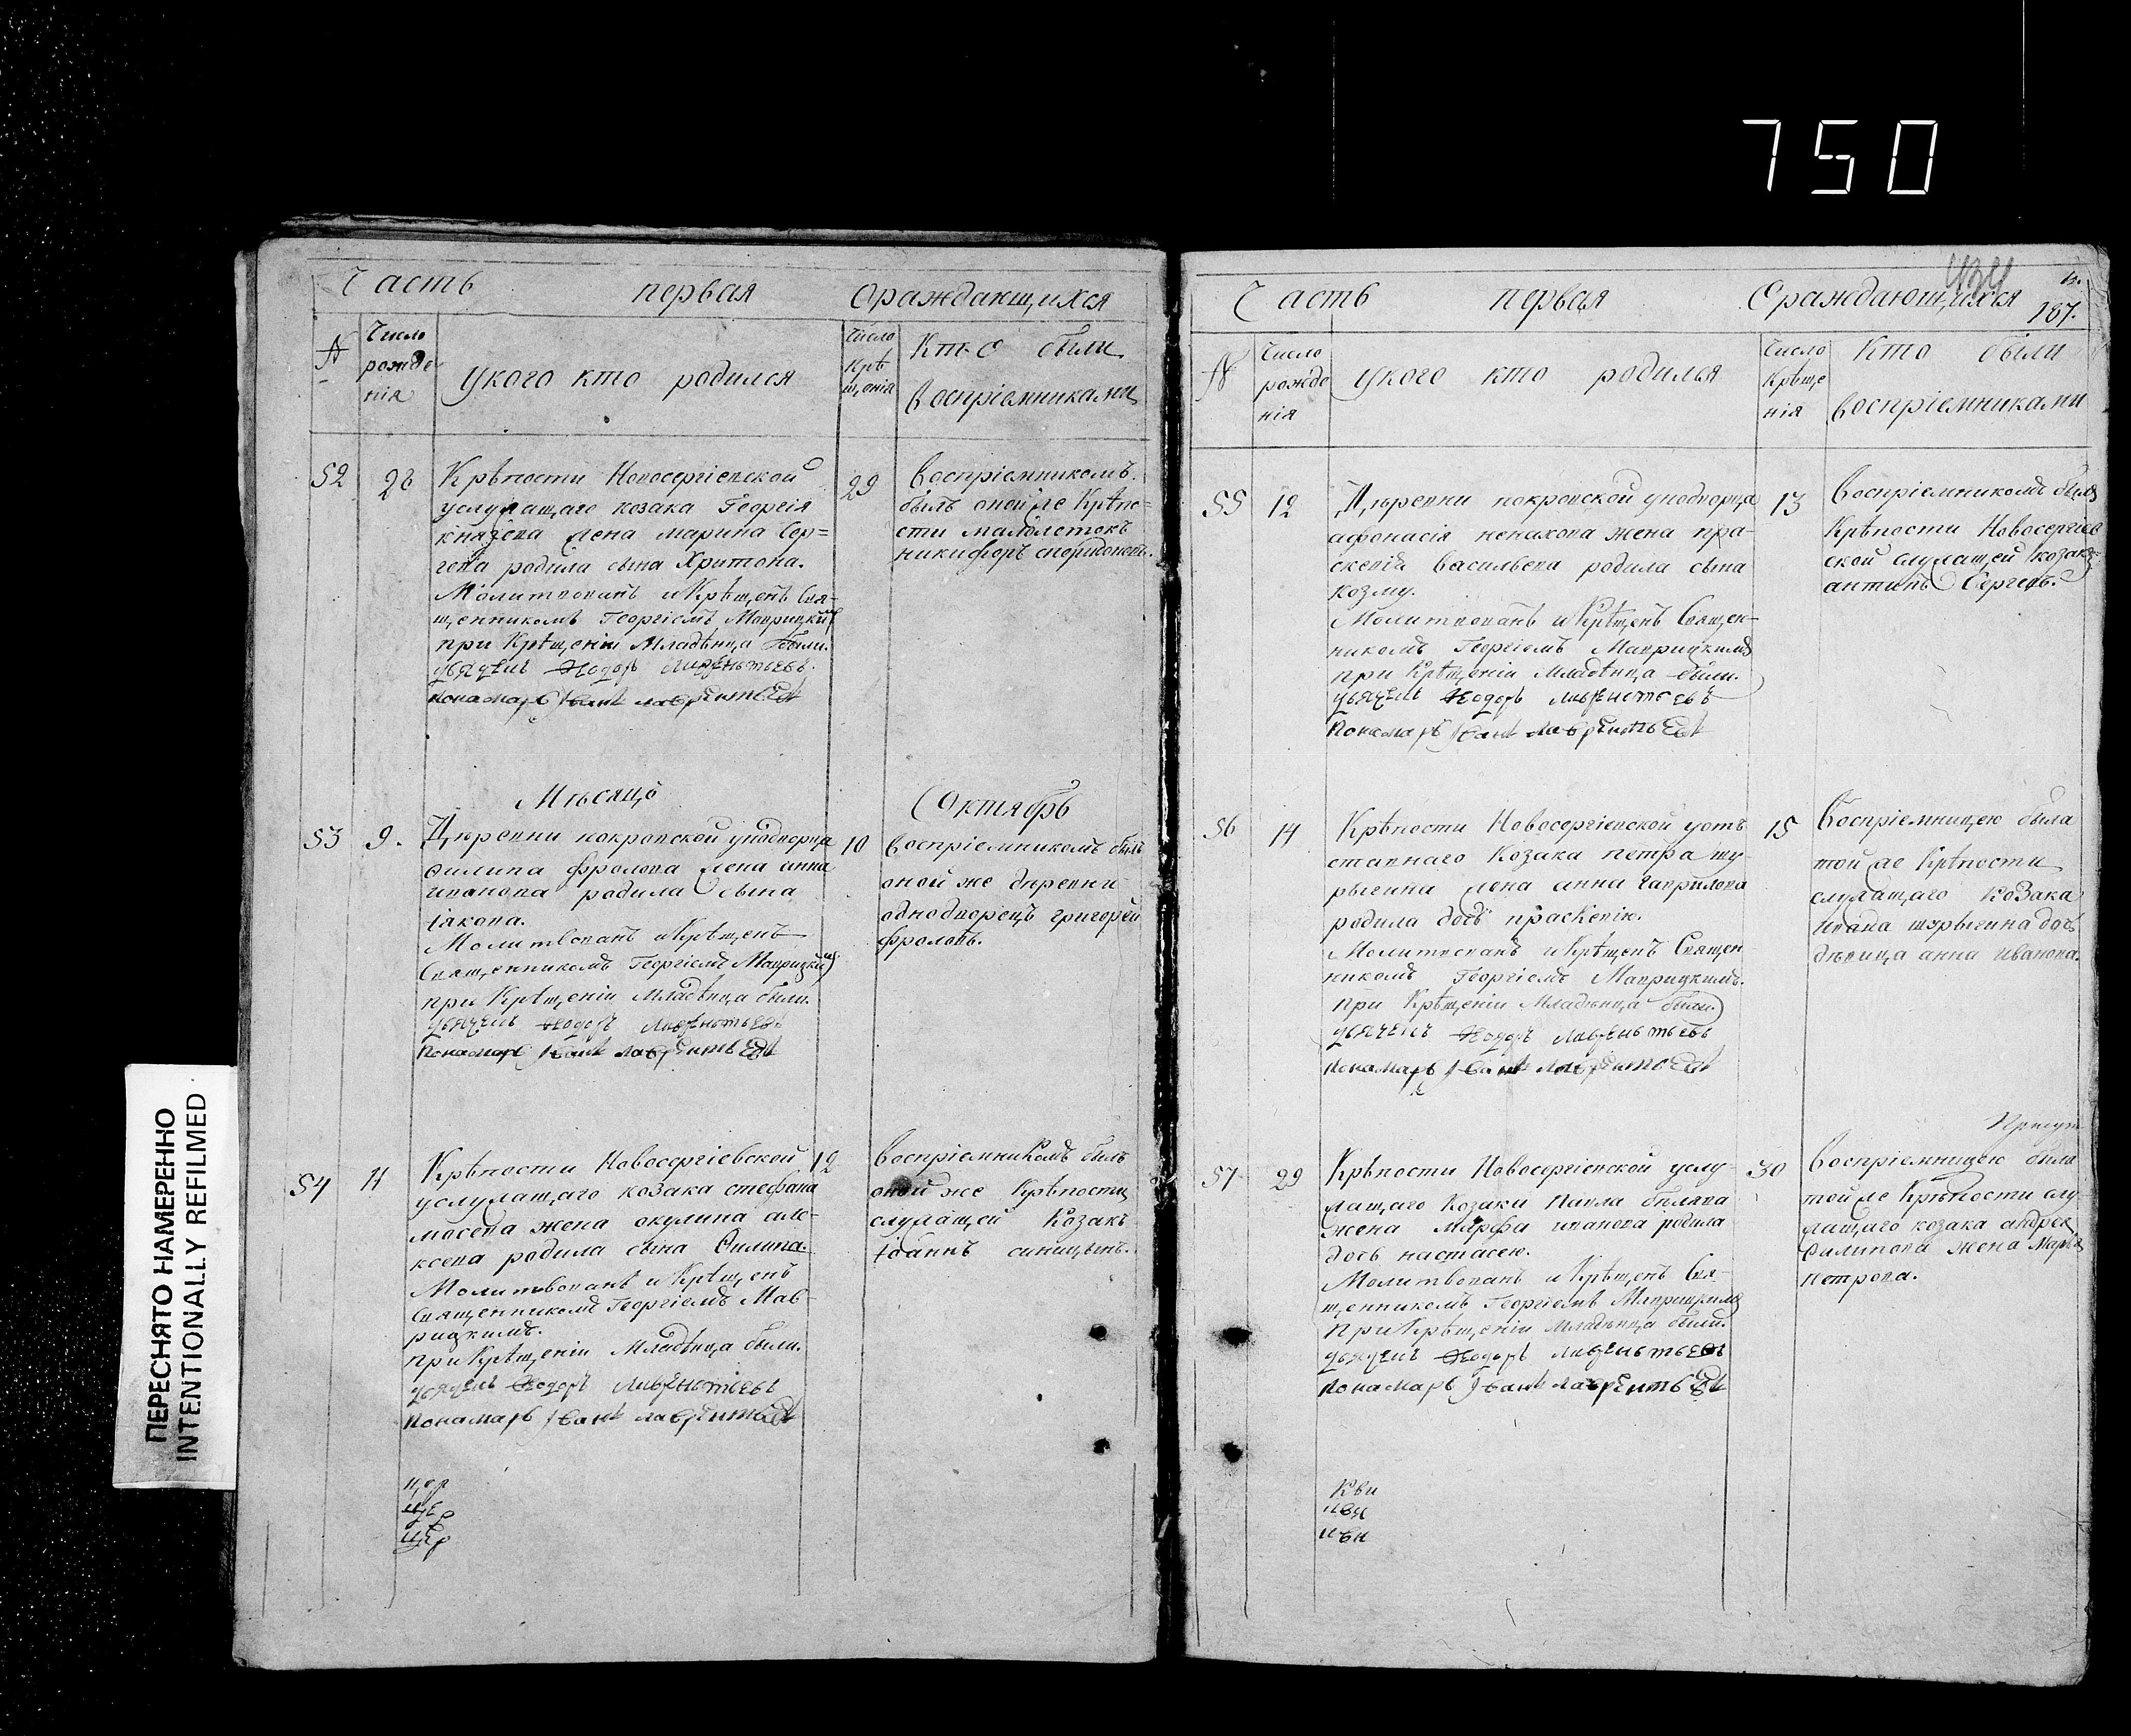 750
Часть первая Ораждающихся
№
Число рожде нія
у кого кто родился
Число Крѣ щенія
Кто были воспріемниками
52
28
Крѣпости Новосергіевской
у служащаго козака Георгія
князева жена марина Сер=
гева родила сына Хритона.
Молитвованъ и Крѣщенъ Свя-
щенникомъ Георгіемъ Маврицкимъ
при Крѣщеніи Младѣнца были.
дьячекъ Ѳедоръ Лаврентьевъ.
Понамарь Іванъ лаврентьевъ
29
Воспріемникомъ
былъ оной же Крѣпо-
сти малолетокъ
никифоръ спиридоновъ.
Мѣсяцъ Октябрь
53
9.
Дѣревни покровской у нодворца
Филипа фролова жена анна
иванова родила сына
іякова.
Молитвованъ и Крѣщенъ
Священникомъ Георгіемъ Маврицкимъ
при Крѣщеніи Младѣнца были.
дьячекъ Ѳедоръ Лаврентьевъ
Понамарь Іванъ лаврентьевъ
10
Воспріемникомъ былъ
оной же дѣревни
однодворецъ григорей
фроловъ.
54
11
Крѣпости Новосергіевской
у служащаго козака стефана
мосева жена окулина але-
ксева родила сына Филипа.
Молитвованъ и Крѣщенъ
Священникомъ Георгіемъ Мав-
рицкимъ.
при Крѣщеніи Младѣнца были.
дьячекъ Ѳедоръ Лаврентьевъ
Понамарь Іванъ лаврентьевъ
12
Воспріемникомъ былъ
оной же Крѣпости
служащей Козакъ
Іоаннъ синицынъ.
ПЕРЕСНЯТО НАМЕРЕННО
INTENTIONALLY REFILMED
187.
Часть первая Ораждающихся
№
Число рожде нія
у кого кто родился
Число Крѣще нія
Кто были воспріемниками
55
12
Дѣревни покровской у нодворца
афонасія ненахова жена пра-
скевія васильева родила сына
козму.
Молитвованъ и Крѣщенъ Священ-
никомъ Георгіемъ Маврицкимъ
при Крѣщеніи Младѣнца были.
дьячекъ Ѳедоръ Лаврентьевъ
Понамарь Іванъ лаврентьевъ
13
Воспріемникомъ былъ
Крѣпости Новосергіев
ской служащей козакъ
антипъ Сергевъ.
56
14
Крѣпости Новосергіевской у отъ
ставнаго Козака петра шу-
рыгина жена анна гаврилова
родила дочь праскевію.
Молитвованъ и Крѣщенъ Священ
никомъ Георгіемъ Маврицкимъ.
при Крѣщеніи Младѣнца были.
дьячекъ Ѳедоръ Лаврентьевъ
Понамарь Іванъ лаврентьевъ
15
Воспріемницею была
той же Крѣпости
служащаго козака
ивана шурыгина дочь
дѣвица анна иванова.
57
29
Крѣпости Новосергіевской у слу-
жащаго Козака павла беляева
жена Марфа иванова родила
дочь настасею.
Молитвованъ и Крѣщенъ Свя-
щенникомъ Георгіемъ Маврицкимъ
при Крѣщеніи Младѣнца были.
дьячекъ Ѳедоръ Лаврентьевъ
Понамарь Іванъ лаврентьевъ
30
Воспріемницею была
той же Крѣпости слу-
жащаго козака андрея
Филипова жена Марія
петрова.